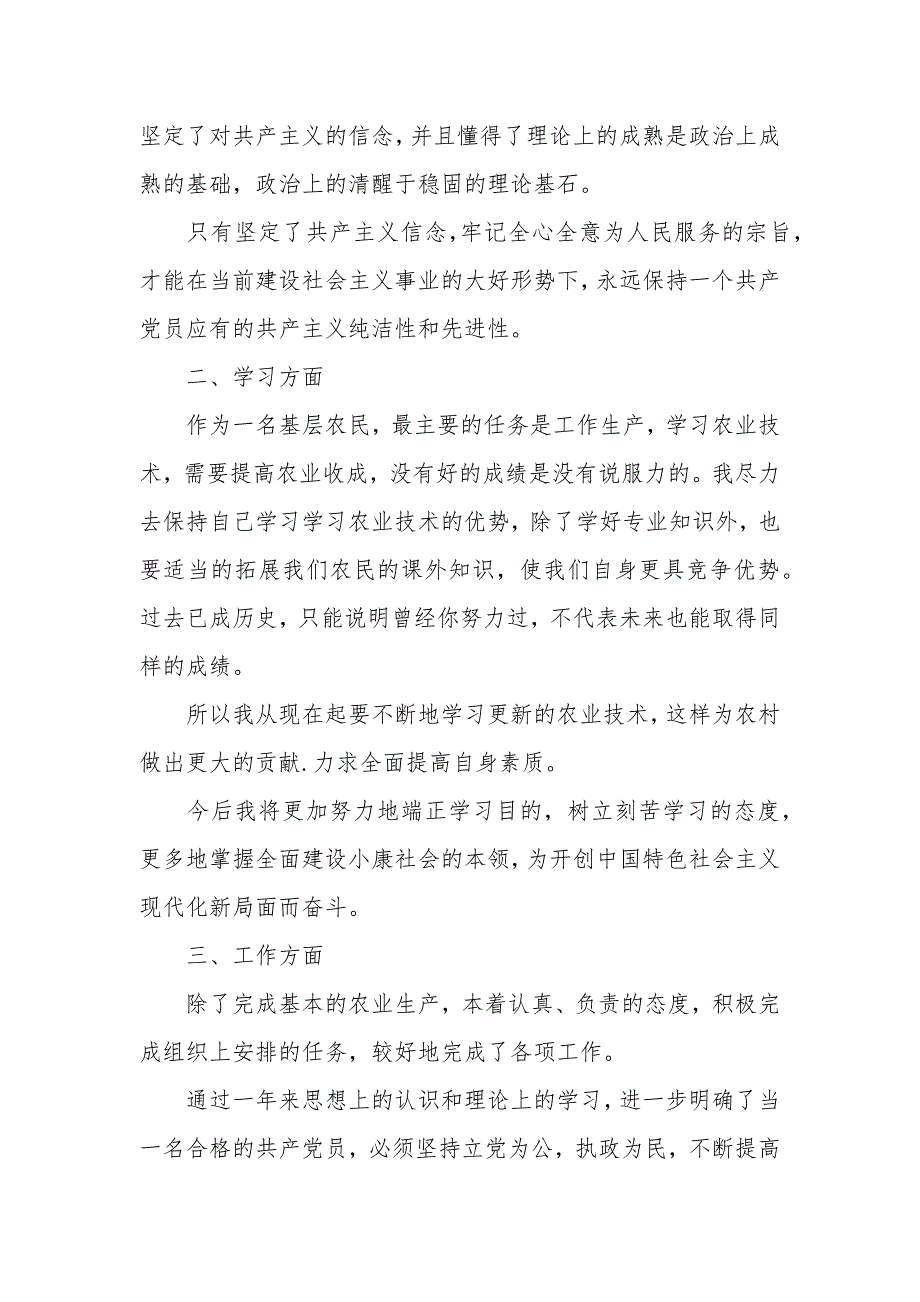 坚定了对共产主义的信念，并且懂得了理论上的成熟是政治上成
熟的基础，政治上的清醒于稳固的理论基石。
只有坚定了共产主义信念，牢记全心全意为人民服务的宗旨，
才能在当前建设社会主义事业的大好形势下，永远保持一个共产
党员应有的共产主义纯洁性和先进性。
二、学习方面
作为一名基层农民，最主要的任务是工作生产，学习农业技
术，需要提高农业收成，没有好的成绩是没有说服力的。我尽力
去保持自己学习学习农业技术的优势，除了学好专业知识外，也
要适当的拓展我们农民的课外知识，使我们自身更具竞争优势。
过去已成历史，只能说明曾经你努力过，不代表未来也能取得同
样的成绩。
所以我从现在起要不断地学习更新的农业技术，这样为农村
做出更大的贡献.力求全面提高自身素质。
今后我将更加努力地端正学习目的，树立刻苦学习的态度，
更多地掌握全面建设小康社会的本领，为开创中国特色社会主义
现代化新局面而奋斗。
三、工作方面
除了完成基本的农业生产，本着认真、负责的态度，积极完
成组织上安排的任务，较好地完成了各项工作。
通过一年来思想上的认识和理论上的学习，进一步明确了当
一名合格的共产党员，必须坚持立党为公，执政为民，不断提高